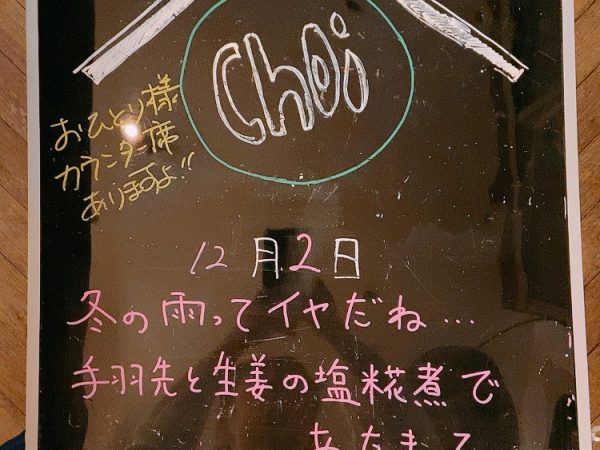 Choi
おひとり様
カウンター席
ありますよ!!
12月2日
冬の雨ってイヤだね…
手羽先と生姜の塩糀煮で